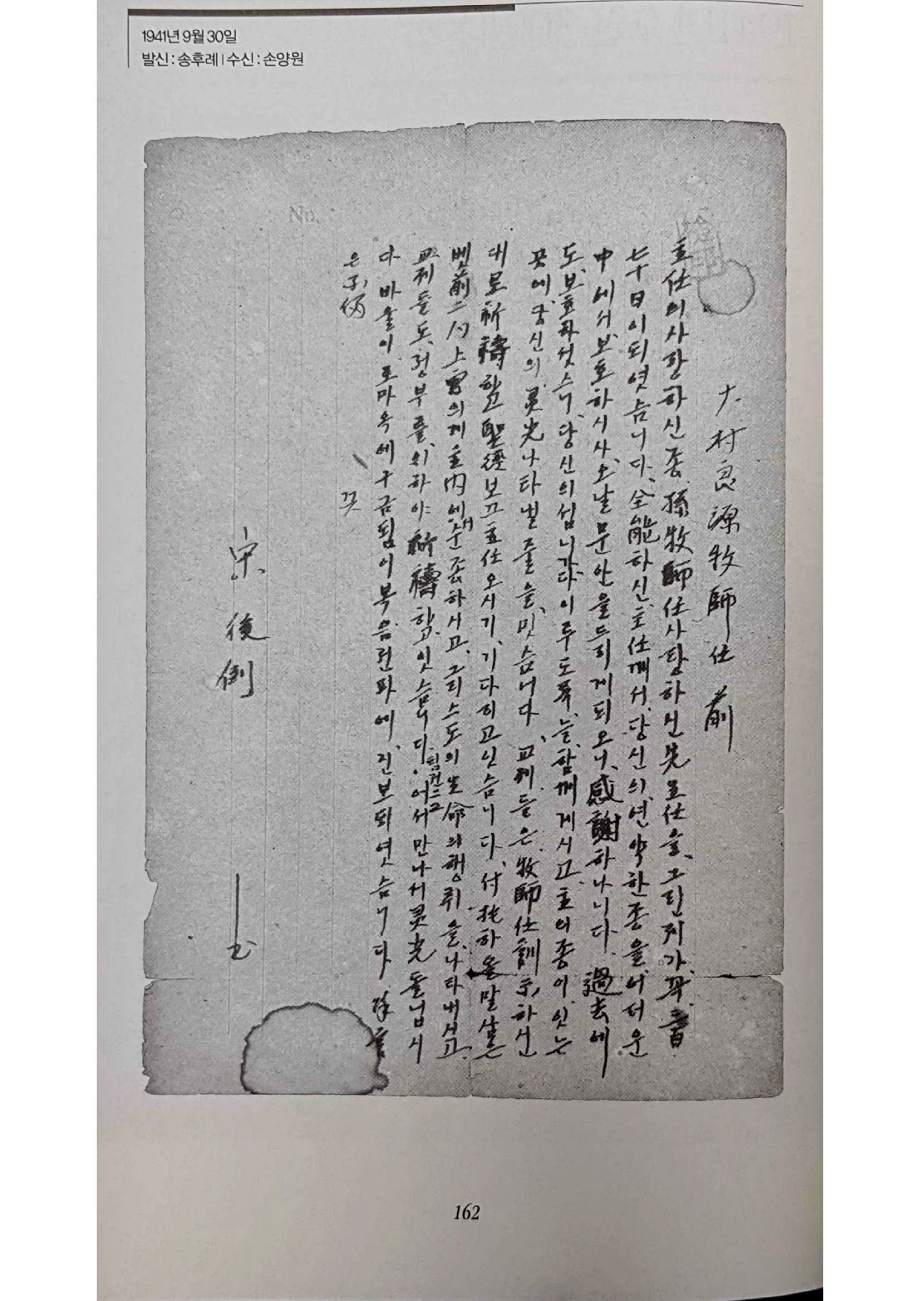 1941년 9월 30일
발신 : 송후례 | 수신 : 손양원
No.
大村良源牧師任 前
主任의사랑하신종, 孫牧師任사랑하신先生任을, 그린지가, 꼭
七十日이되엿슴니다, 全能하신, 主任게서, 당신의, 연약한종을, 어려운
中에서, 보호하시사, 오날문안을드리게되오니, 感謝하나니다. 過去에
도, 보호하섯스니, 당신의섭니가다이루도록, 늘, 함께게시고, 主의종이, 잇는
곳에, 당신의, 灵光나타낼줄을, 밋슴니다 교제들은, 牧師任訓示하신
대로祈禱하고聖徑보고主任오시기, 기다리고잇슴니다, 付托하올말삼은
벧前二〇上書의게主內에순종하시고, 그리스도의生命의행취을, 나타내시고
교제들도, 형부를, 위하야祈禱하고, 잇슴니다. 어서만나서灵光돌닙시
다 바울이로마옥에구금됨이복음전파에, 진보되엿슴니다, 餘言
은不備
끗
宋後例
上
162